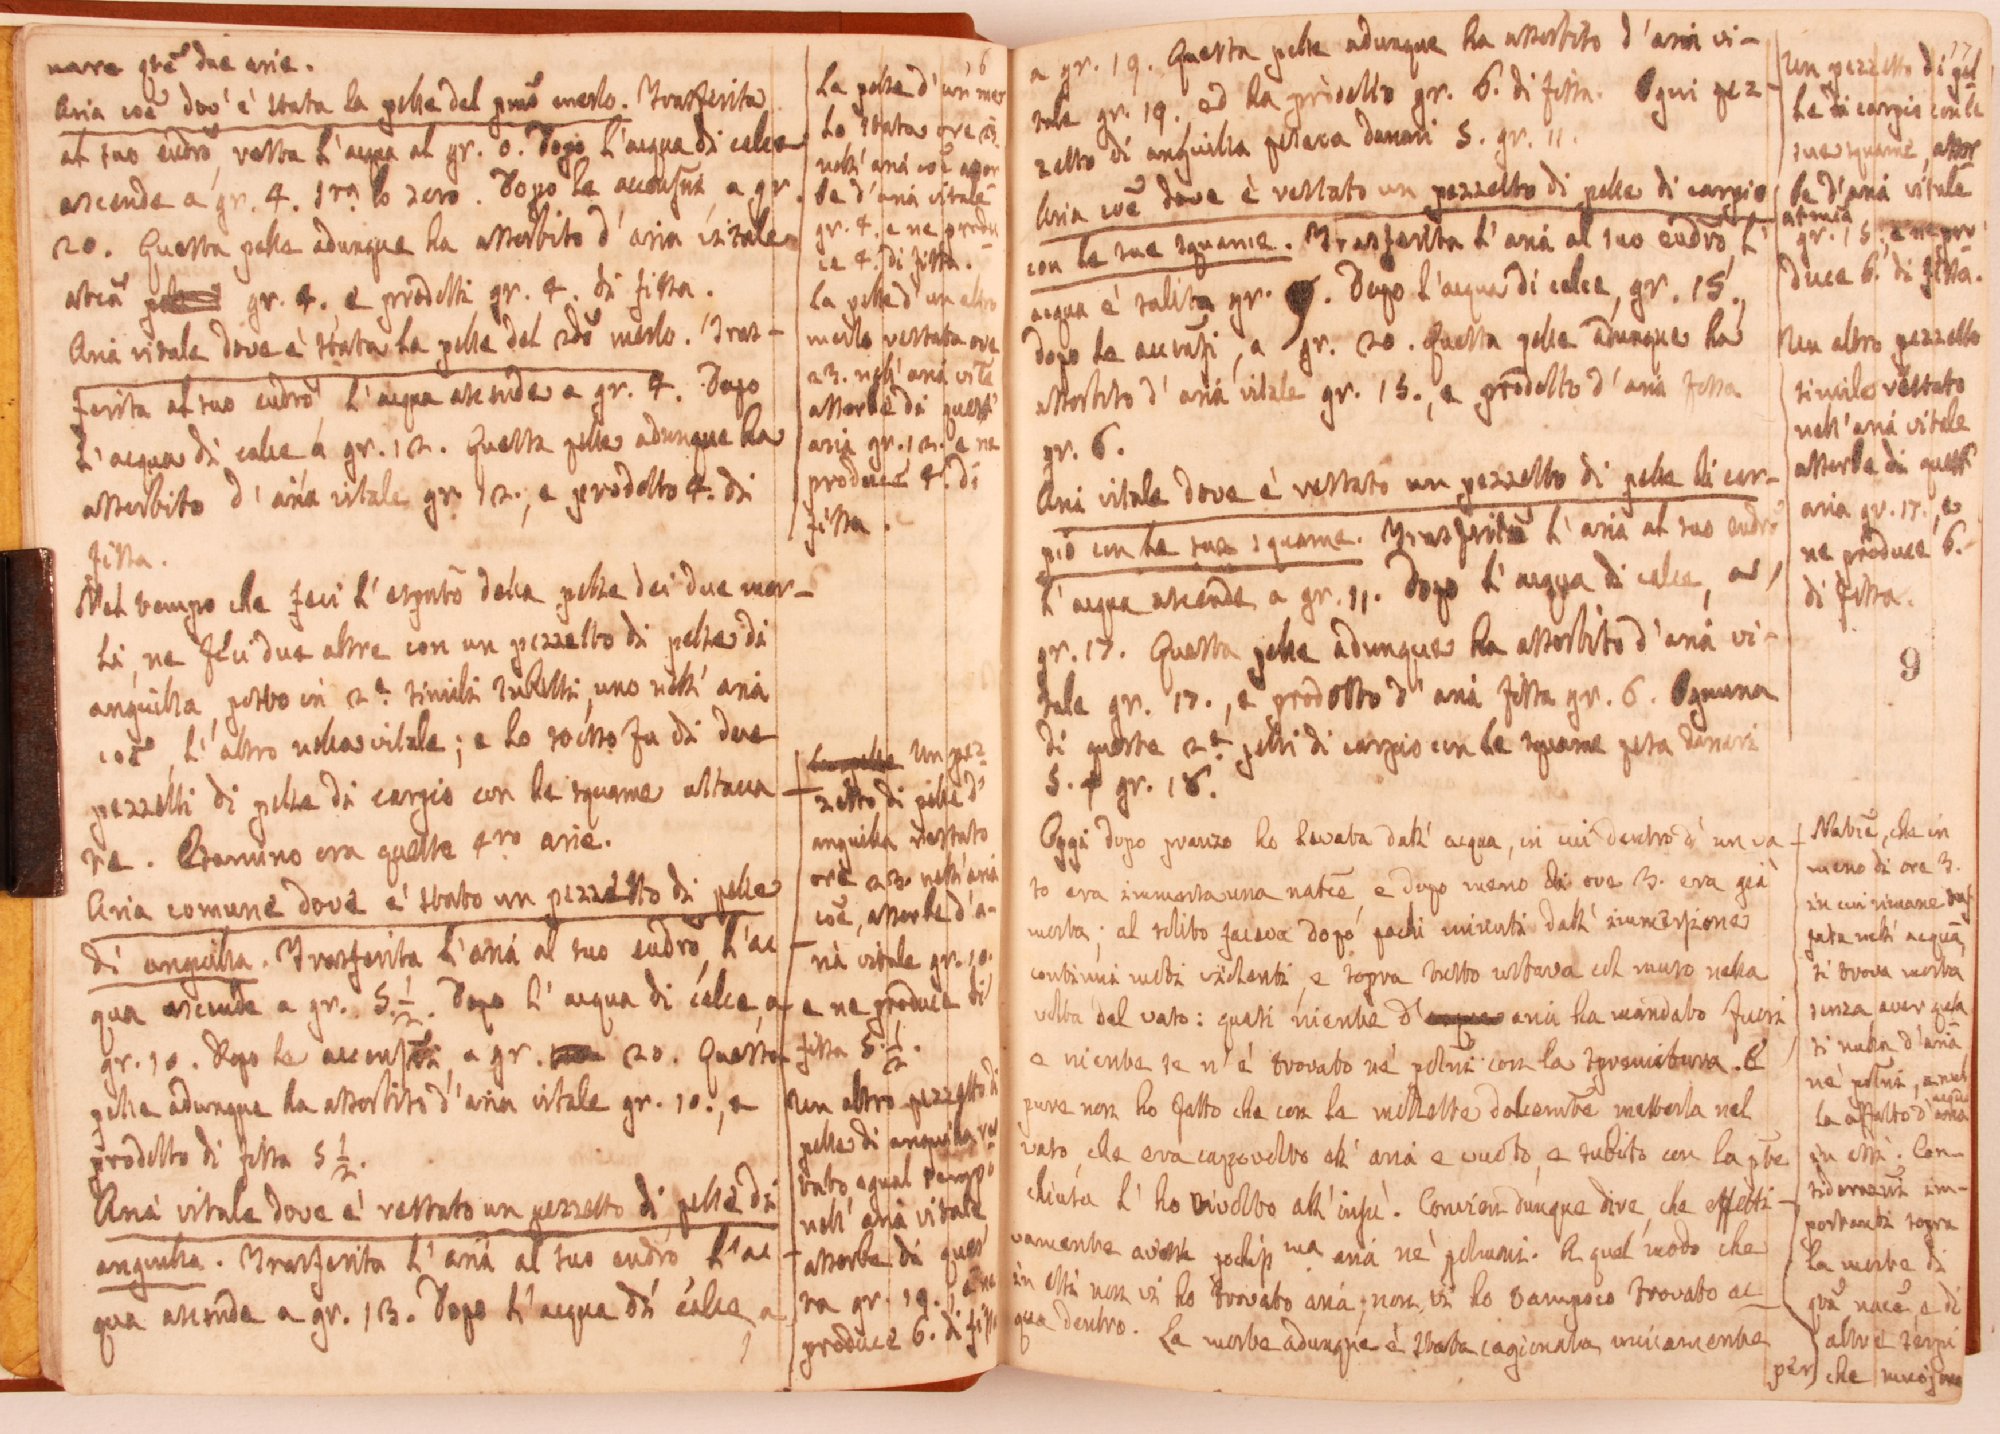 nare qte due arie.
Aria coe dov' è stata la pelle del pmo merlo. Trasferita
al suo eudro, resta l'acqua al gr. 0. Dopo l'acqua di calce
ascende a gr. 4. sra lo zero. Dopo le accensni, a gr.
20. Questa pelle adunque ha assorbito d' aria vitale
gr. 4. e prodotti gr. 4. di fissa.
Aria vitale dove è stata la pelle del 2do merlo. Tras-
ferita al suo eudro l'acqua ascende a gr. 4. Dopo
l'acqua di calce a gr. 12. Questa pelle adunque ha
assorbito d' aria vitale gr. 12., e prodotto 4. di
fissa.
Nel tempo che feci l'esprto della pelle dei due mer-
li, ne feci due altre con un pezzetto di pelle di
anguilla, posto in 2e simili tubetti, uno nell' aria
coe, l'altro nella vitale; e lo stesso fu di due
pezzetti di pelle di carpio con le squame attacca
te. Esamino ora queste 4ro arie.
Aria comune dove è stato un pezzetto di pelle
di anguilla. Trasferita l'aria al suo eudro, l'ac
qua ascende a gr. 5 1/2. Dopo l'acqua di calce, a
gr. 10. Dopo le accensni, a gr. 20. Questa
pelle adunque ha assorbito d'aria vitale gr. 10., e
prodotto di fissa 5 1/2.
Aria vitale dove è restato un pezzetto di pelle di
anguilla. Trasferita l'aria al suo eudro l'ac-
qua ascende a gr. 13. Dopo l'acqua di calce a
La pelle d'un mer
lo stata ore 23.
nell' aria coe assor
be d'aria vitale
gr. 4. e ne produ
ce 4. di fissa.
La pelle d'un altro
merlo restata ore
23. nell' aria vitle
assorbe di quest'
aria gr. 12. e ne
produce 4. di
fissa.
Un pez-
zetto di pelle d'
anguilla restato
ore 23. nell' aria
coe, assorbe d'a-
ria vitale gr. 10.
e ne produce di
fissa 5 1/2.
Un altro pezzetto di
pelle di anguilla res
tato egual tempo
nell' aria vitale
assorbe di ques'
ria gr. 19., e ne
produce 6. di fissa
a gr. 19. Questa pelle adunque ha assorbito d'aria vi-
tale gr. 19. ed ha prodotto gr. 6. di fissa. Ogni pez-
zetto di anguilla pesava danari 5. gr. 11.
Aria coe dove è restato un pezzetto di pelle di carpio
con le sue squame. Trasferita l'aria al suo eudro, l'
acqua è salita gr. 9. Dopo l'acqua di calce, gr. 15.,
dopo le accensni, a gr. 20. Questa pelle adunque ha
assorbito d'aria vitale gr. 15., e prodotto d'aria fissa
gr. 6.
Aria vitale dove è restato un pezzetto di pelle di car-
pio con le sue squame. Trasferita l'aria al suo eudro
l'acqua ascende a gr. 11. Dopo l'acqua di calce, a
gr. 17. Questa pelle adunque ha assorbito d'aria vi-
tale gr. 17., e prodotto d'aria fissa gr. 6. Ognuna
di queste 2e pelli di carpio con le squame pesa danari
5. gr. 18.
Oggi dopo pranzo ho levata dall' acqua, in cui dentro d'un va
so era immersa una natce, e dopo meno di ore 3. era già
morta; al solito faceva dopo pochi minuti dall' immersione
continui moti violenti, e sopra tutto urtava col muso nella
volta del vaso: quasi niente d' aria ha mandato fuori
e niente se n'è trovato ne' polmi con la spremitura. E
pure non ho fatto che con le mollette dolcemte metterla nel
vaso, che era capovolto all' aria e vuoto, e subito con la pte
chiusa l'ho rivolto all' insù. Convien dunque dire, che effetti-
vamente avesse pochissma aria ne' polmoni. A quel modo che
in essi non vi ho trovato aria, non vi ho tampoco trovato ac-
qua dentro. La morte adunque è stata cagionata unicamente
per
17
Un pezzetto di pel
le di carpio con le
sue squame, assor
be d'aria vitale
gr. 15., e ne pro
duce 6. di fissa.
Un altro pezzetto
simile restato
nell' aria vitale
assorbe di quest'
aria gr. 17., e
ne produce 6.
di fissa.
9
Natce, che in
meno di ore 3.
in cui rimane tuf
fata nell' acqua,
si trova morta
senza aver qua
si nulla d'aria
ne' polmi, e nul
la affatto d'acqua
in essi. Con-
siderazni im-
portanti sopra
la morte di
qta nace e di
altre serpi
che muojono